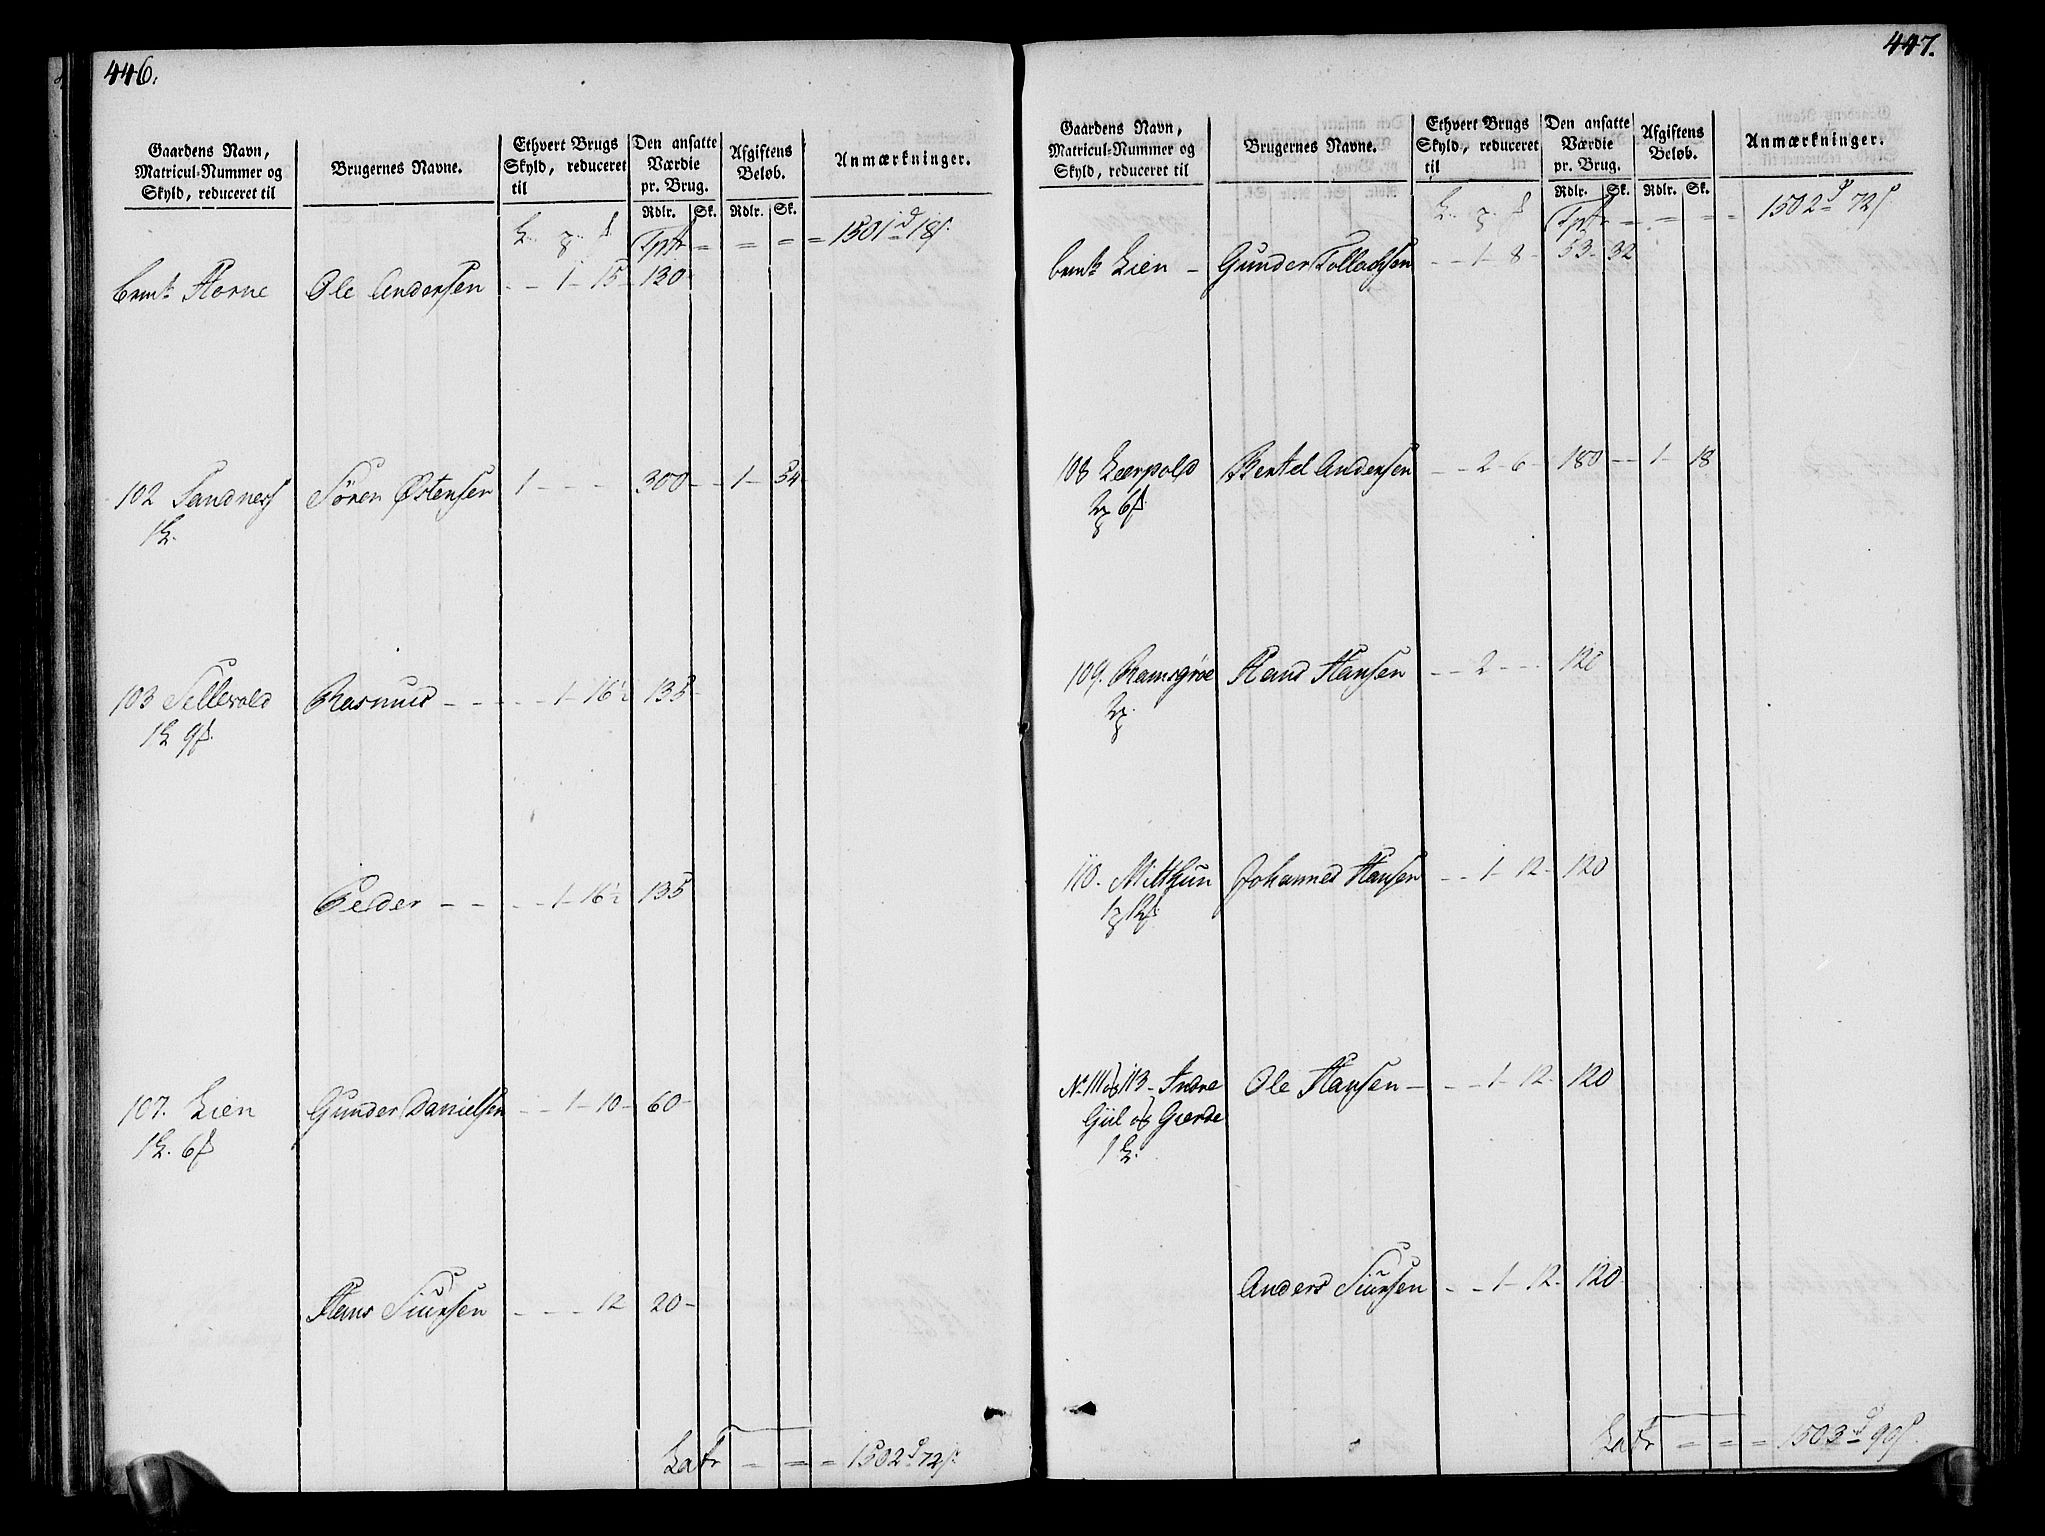 446.
Gaardens Navn, Matricul-Nummer og Skyld, reduceret til
Brugernes Navne.
Ethvert Brugs Skyld, reduceret til
Den ansatte Værdie pr. Brug.
Afgiftens Beløb.
Anmærkninger.
Rdlr. Sk. Rdlr. Sk.
Tptr = = = = 1501 d 18 s.
Horne Ole Andersen - - 1 - 15 - 130
102 Sandness Sören Østensen 1 - - - 300 - - 1 - 54
103 Sellevold Rasmus - - - - - 1 - 16½ 135
Peder - - - - 1 - 16½ 135
107. Lien Gunder Danielsen - - 1 - 10 - 60 -
Hans Siursen - - - 12 20 -
Latr = = = 1502 d 72 s.
447.
Gaardens Navn, Matricul-Nummer og Skyld, reduceret til
Brugernes Navne.
Ethvert Brugs Skyld, reduceret til
Den ansatte Værdie pr. Brug.
Afgiftens Beløb.
Anmærkninger.
Rdlr. Sk. Rdlr. Sk.
Tptr = = = = 1502 d 72 s.
Lien - Gunder Tollachsen - - 1 - 8 - 53 - 32
108 Leerpold Bertel Andersen - - 2 - 6 - 180 - - 1 - 18
109. Ramsgröe Hans Hansen - - 2 - - - 120
110. Mitthun Johannes Hansen - - 1 - 12 - 120
No 111 & 113 - Indre Ole Hansen - - - 1 - 12 - 120
Giil og Gierde
Anders Siursen - - 1 - 12 - 120
Latr = = = 1503 d 90 s.